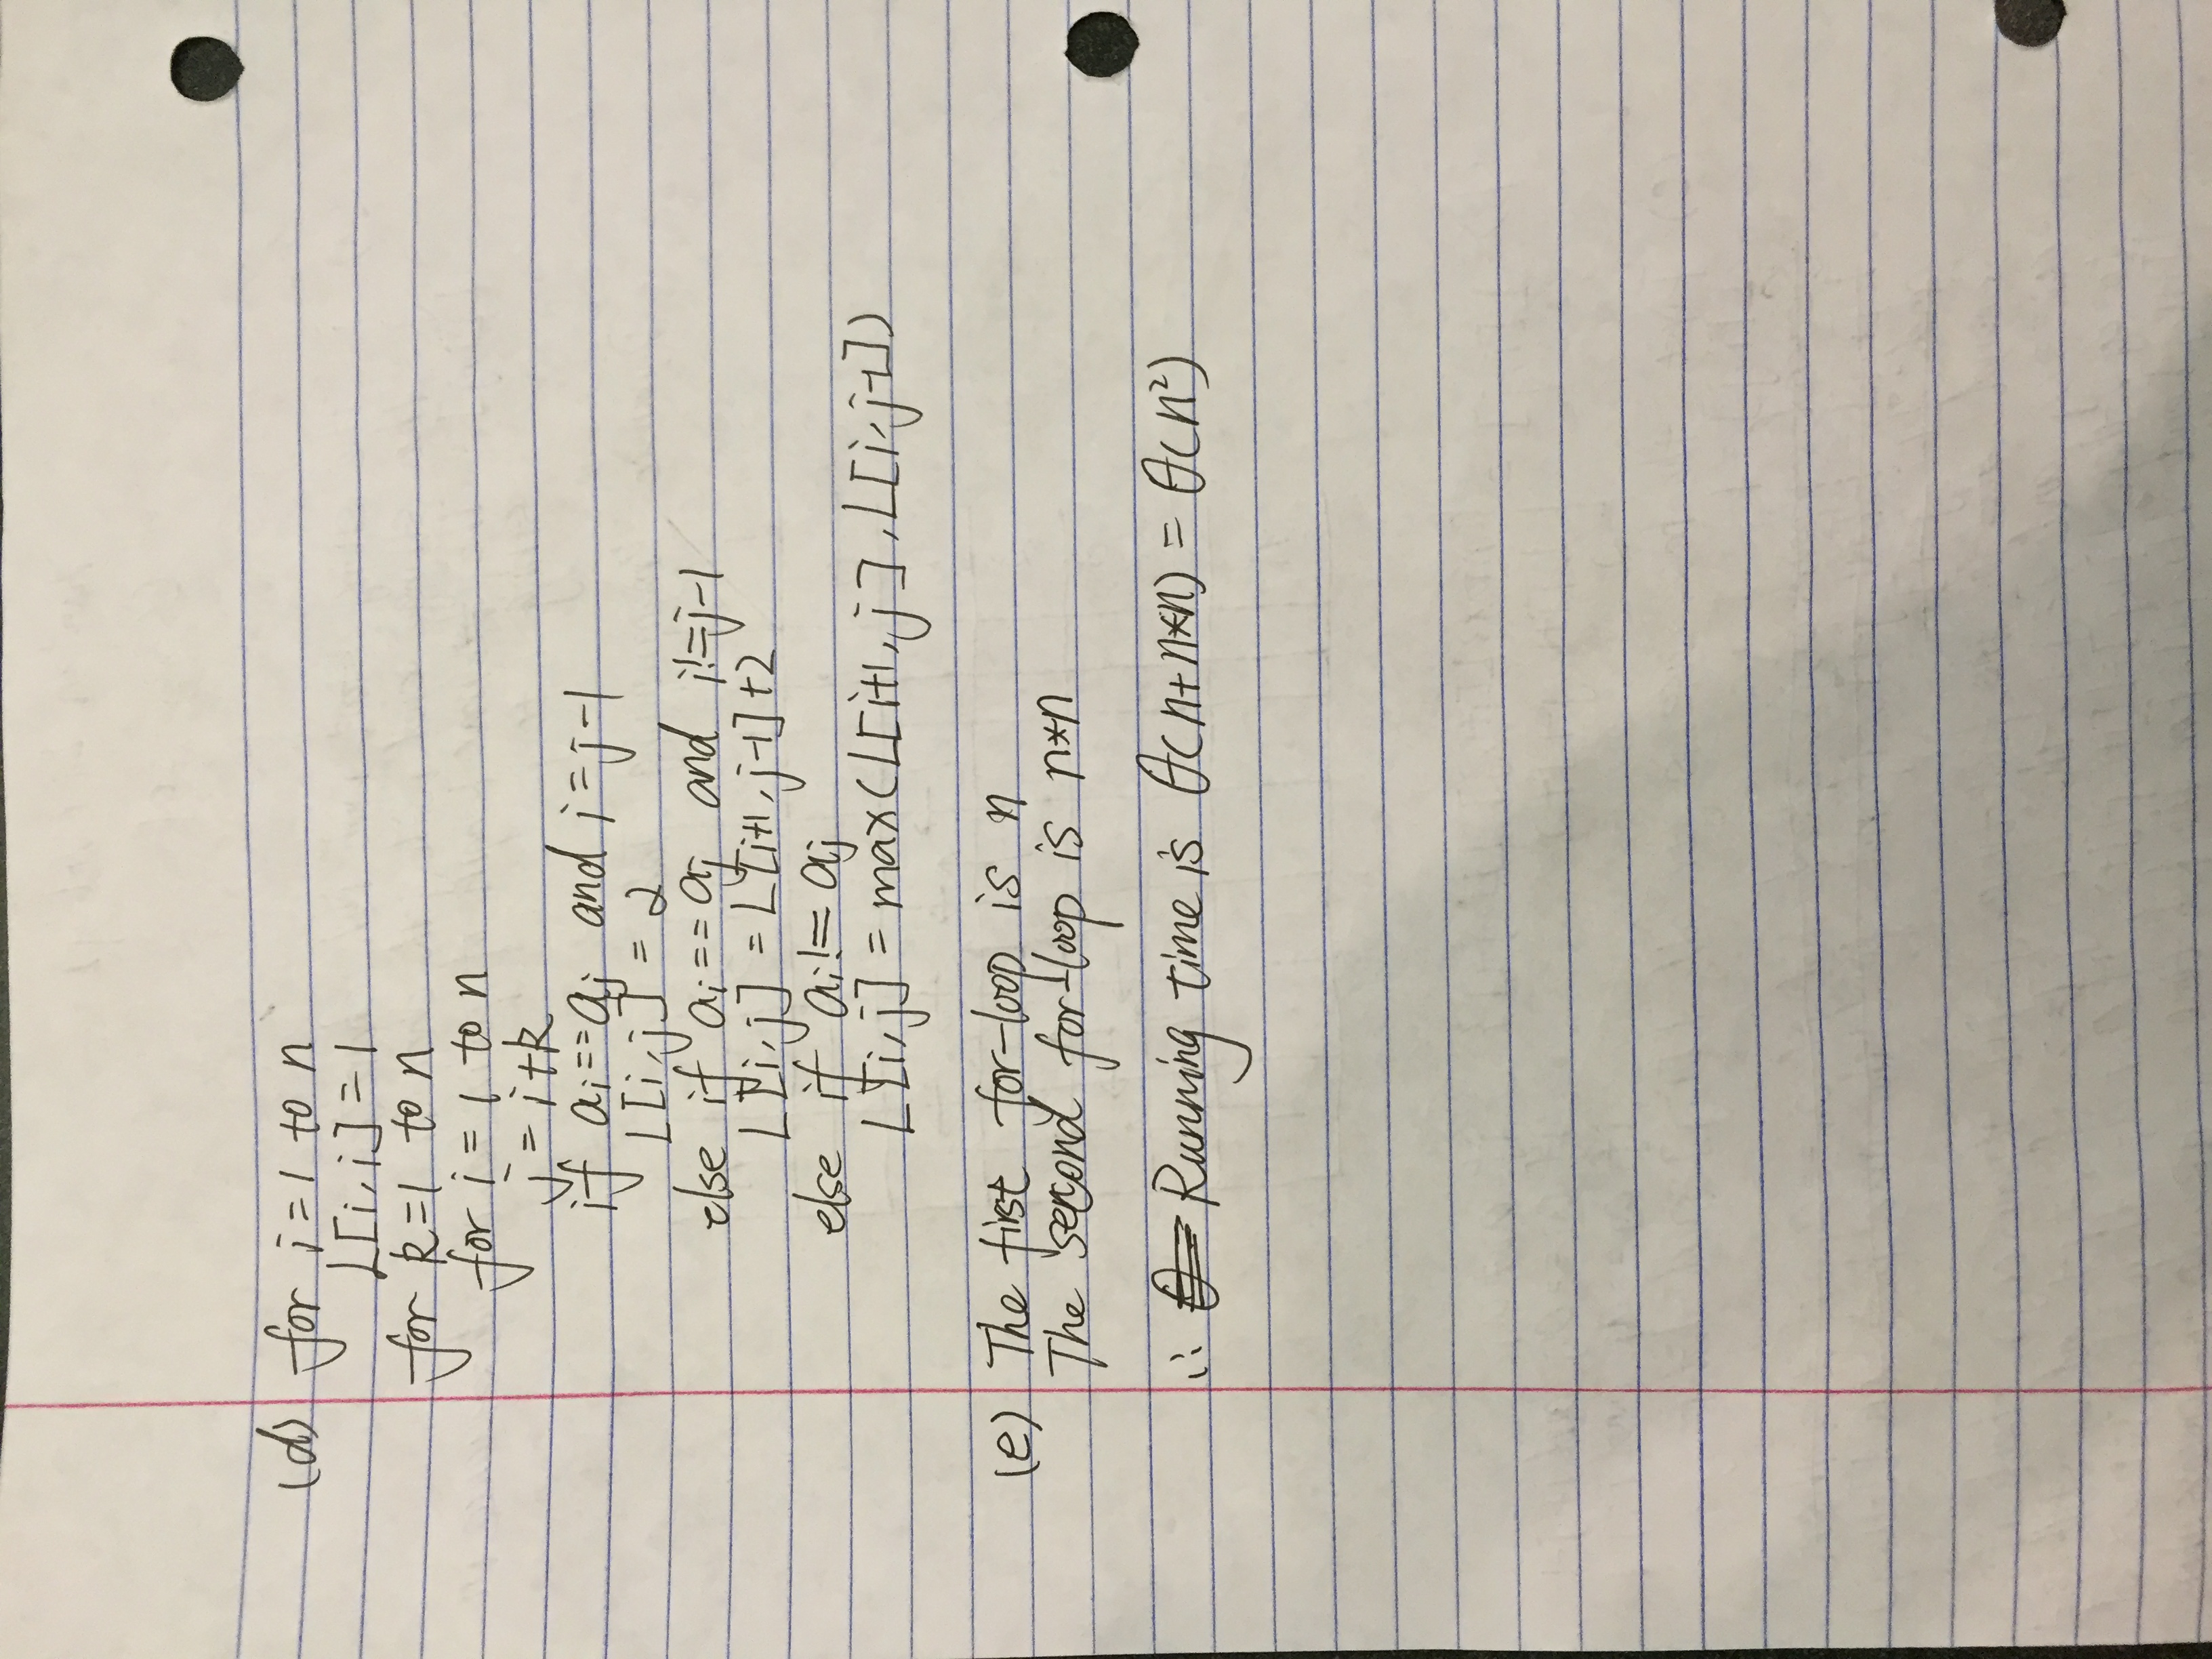 (d) for i=1 to n
L[i,i]=1
for k=1 to n
for i=1 to n
j=i+k
if ai==aj and i=j-1
L[i,j]=2
else if ai==aj and i!=j-1
L[i,j]=L[i+1,j-1]+2
else if ai!=aj
L[i,j]=max(L[i+1,j],L[i,j-1])
(e) The first for-loop is n
The second for-loop is n*n
∴ Running time is θ(n+n*n)=θ(n²)